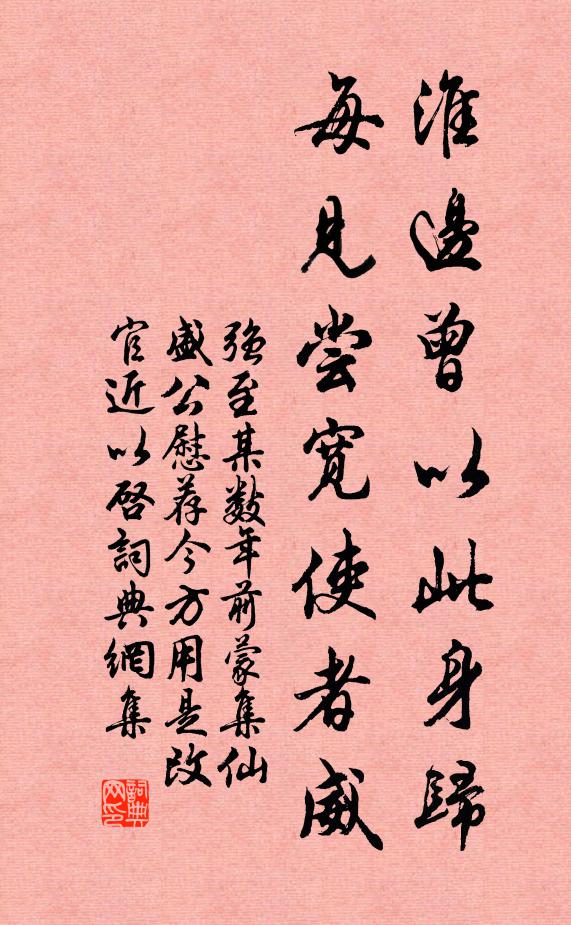 淮邊曾以此身歸
每見嘗寬使者威
強至某數年前蒙集仙
盛公慰荐今方用是改
官近以啓詞典網集
詞典網印